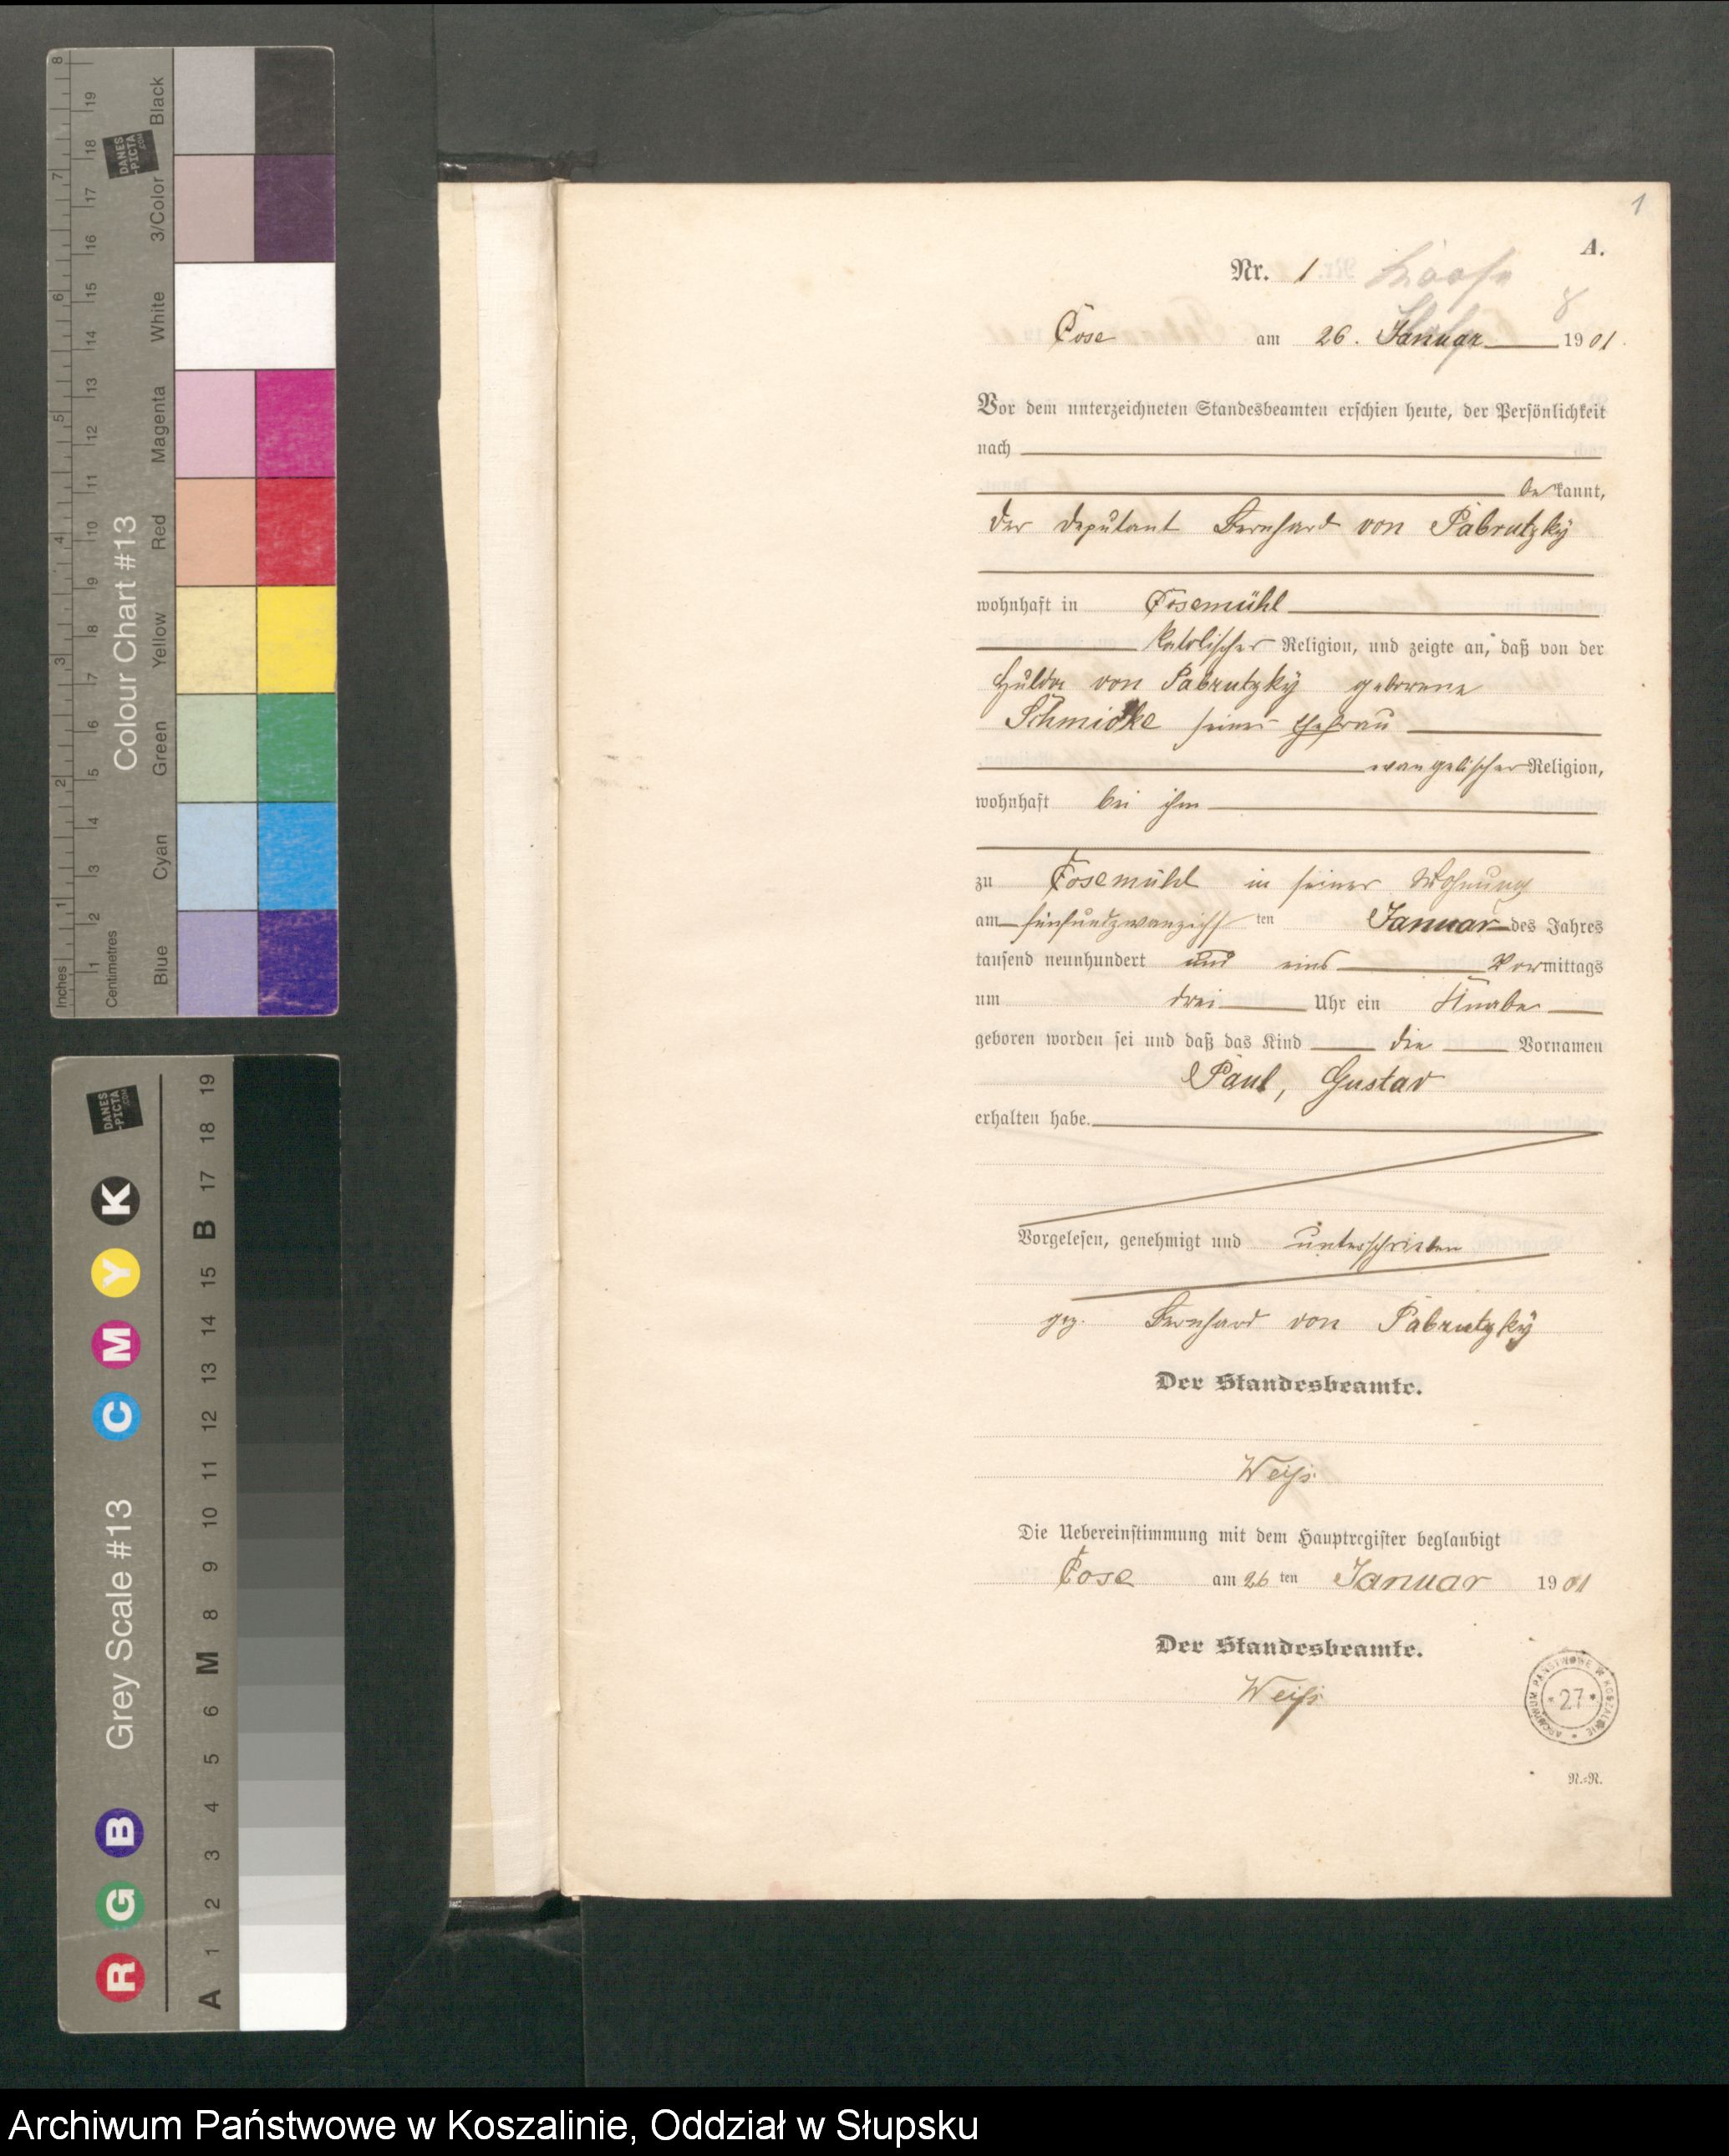 8
19
Black
DANES
-PICTA
.COM
18
7
17
3/Color
16
6
15
White
14
13
Magenta
5
12
11
Red
4
10
9
Colour Chart #13
Yellow
8
3
7
Green
6
2
5
Cyan
4
3
1
2
Blue
1
Inches
Centimetres
DANES
-PICTA
.COM
19
18
17
B
15
14
13
12
11
10
9
8
M
6
5
4
3
2
1
A
K
Y
M
C
Grey Scale #13
B
G
R
1
A.
Nr. 1
8
Cose am 26. Januar 1901.
Vor dem unterzeichneten Standesbeamten erschien heute, der Persönlichkeit
nach
bekannt,
der Deputant Bernhard von Pabrutzky
wohnhaft in Cosemühl
katolischer Religion, und zeigte an, daß von der
Hulda von Pabrutzky geborene
Schmidke seiner Ehefrau
evangelischer Religion,
wohnhaft bei ihm
zu Cosemühl in seiner Wohnung
am fünfundzwanzigsten Januar des Jahres
tausend neunhundert und eins Vormittags
um drei Uhr ein Knabe
geboren worden sei und daß das Kind die Vornamen
Paul, Gustav
erhalten habe.
Vorgelesen, genehmigt und unterschrieben
gez. Bernhard von Pabrutzky
Der Standesbeamte.
Weiß
Die Uebereinstimmung mit dem Hauptregister beglaubigt
Cose am 26 ten Januar 1901
Der Standesbeamte.
Weiß
ARCHIWUM PAŃSTWOWE W KOSZALINIE
* 27 *
N.=N.
Archiwum Państwowe w Koszalinie, Oddział w Słupsku